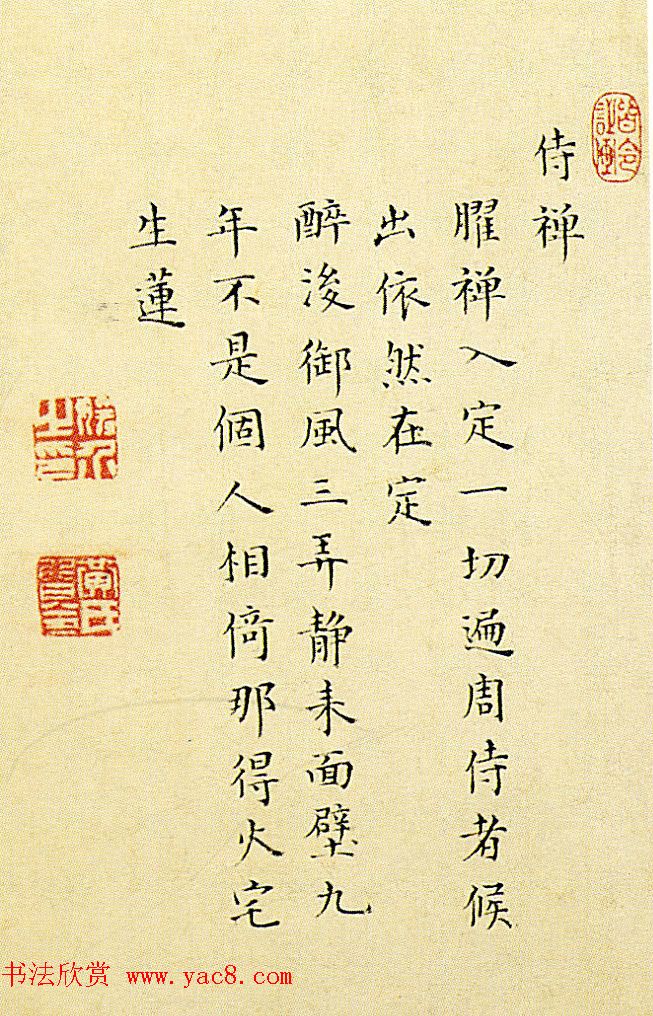 侍禅
臞禅入定一切遍周侍者候
出依然在定
醉後御風三弄静来面壁九
年不是個人相倚那得火宅
生蓮
皆令
書法欣赏 www.yac8.com